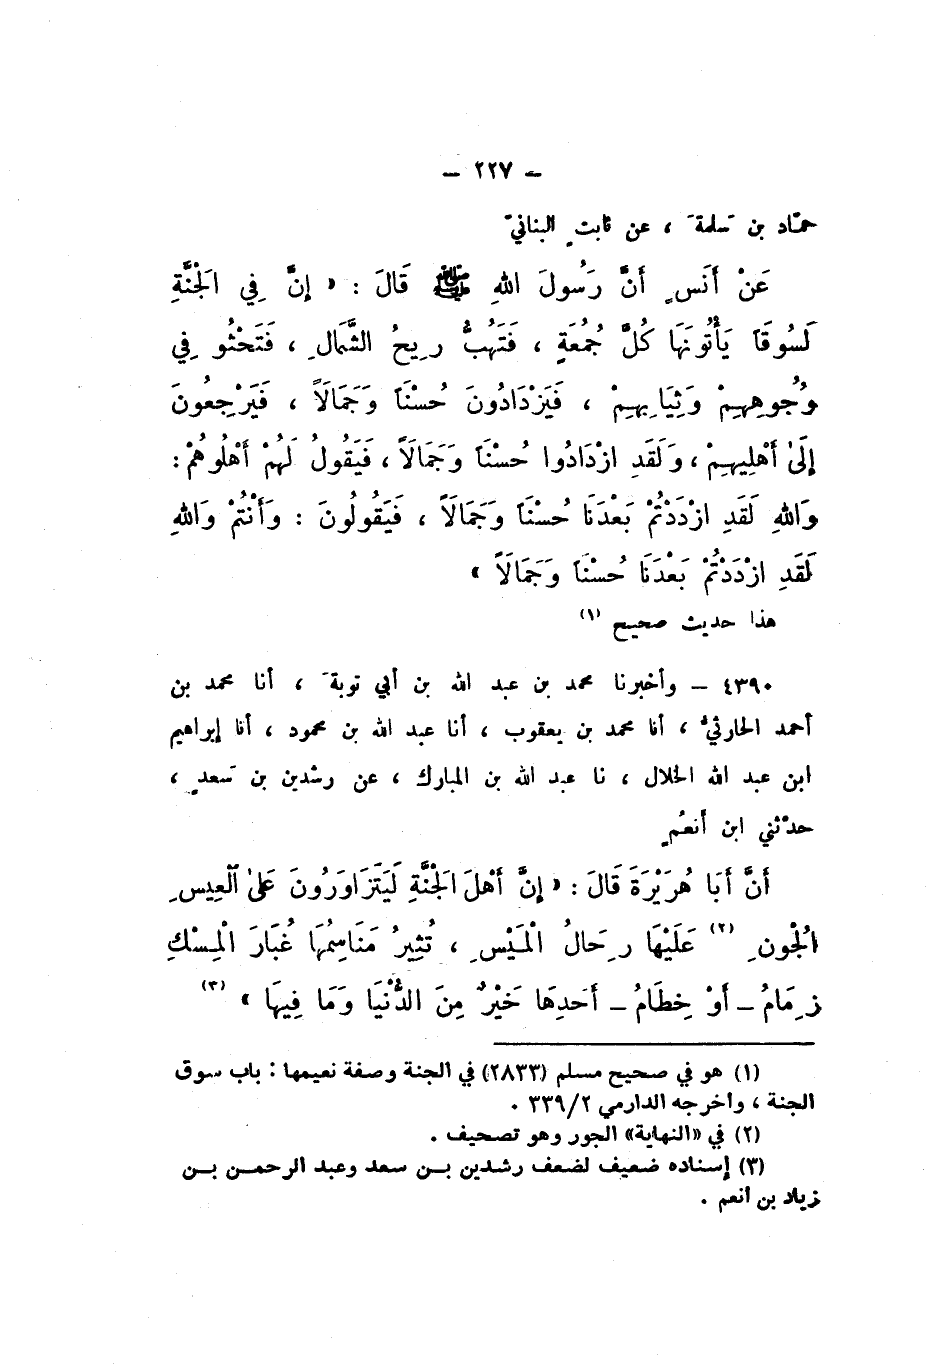 – ٢٢٧ –
حمّاد بن سَلمةَ ، عن ثابتٍ البنانيّ
عَنْ أَنَسٍ أَنَّ رَسُولَ اللهِ ﷺ قَالَ : « إِنَّ فِي الْجَنَّةِ
لَسُوقَاً يَأْتُونَهَا كُلَّ جُمُعَةٍ ، فَتَهُبُّ رِيحُ الشَّمَالِ ، فَتَحْثُو فِي
وُجُوهِهِمْ وَثِيَابِهِمْ ، فَيَزْدَادُونَ حُسْنَاً وَجَمَالَاً ، فَيَرْجِعُونَ
إِلَى أَهْلِيهِمْ ، وَلَقَدِ ازْدَادُوا حُسْنَاً وَجَمَالَاً ، فَيَقُولُ لَهُمْ أَهْلُوهُمْ :
وَاللهِ لَقَدِ ازْدَدْتُمْ بَعْدَنَا حُسْنَاً وَجَمَالَاً ، فَيَقُولُونَ : وَأَنْتُمْ وَاللهِ
لَقَدِ ازْدَدْتُمْ بَعْدَنَا حُسْنَاً وَجَمَالَاً »
هذا حديث صحيح (١)
٤٣٩٠ – وأخبرنا محمد بن عبد الله بن أبي توبةَ ، أنا محمد بن
أحمد الحارثيُّ ، أنا محمد بن يعقوب ، أنا عبد الله بن محمود ، أنا إبراهيم
ابن عبد الله الخلال ، نا عبد الله بن المبارك ، عن رشدين بن سَعدٍ ،
حدّثني ابن أنعُمٍ
أَنَّ أَبَا هُرَيْرَةَ قَالَ : « إِنَّ أَهْلَ الْجَنَّةِ لَيَتَزَاوَرُونَ عَلَى الْعِيسِ
الْجُونِ (٢) عَلَيْهَا رِحَالُ الْمَيْسِ ، تُثِيرُ مَنَاسِمُهَا غُبَارَ الْمِسْكِ
زِمَامُ – أَوْ خِطَامُ – أَحَدِهَا خَيْرٌ مِنَ الدُّنْيَا وَمَا فِيهَا » (٣)
(١) هو في صحيح مسلم (٢٨٣٣) في الجنة وصفة نعيمها : باب سوق
الجنة ، وأخرجه الدارمي ٣٣٩/٢ .
(٢) في «النهاية» الجور وهو تصحيف .
(٣) إسناده ضعيف لضعف رشدين بن سعد وعبد الرحمن بن
زياد بن أنعم .